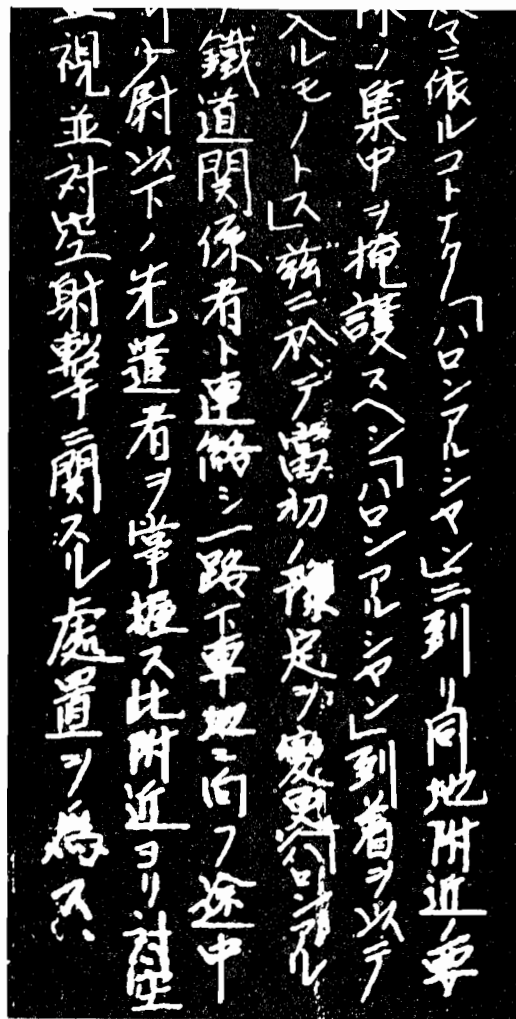 令ニ依ルコトナク「ハロンアルシヤン」ニ到リ同地附近ノ要
隊ノ集中ヲ掩護スヘシ「ハロンアルシヤン」到着ヲ以テ
入ルモノトス」茲ニ於テ當初ノ豫定ヲ変更「ハロンアル
鐵道関係者ト連絡シ一路下車地ニ向フ途中
少尉以下ノ先遣者ヲ掌握ス此附近ヨリ対空
視並対空射撃ニ関スル處置ヲ為ス